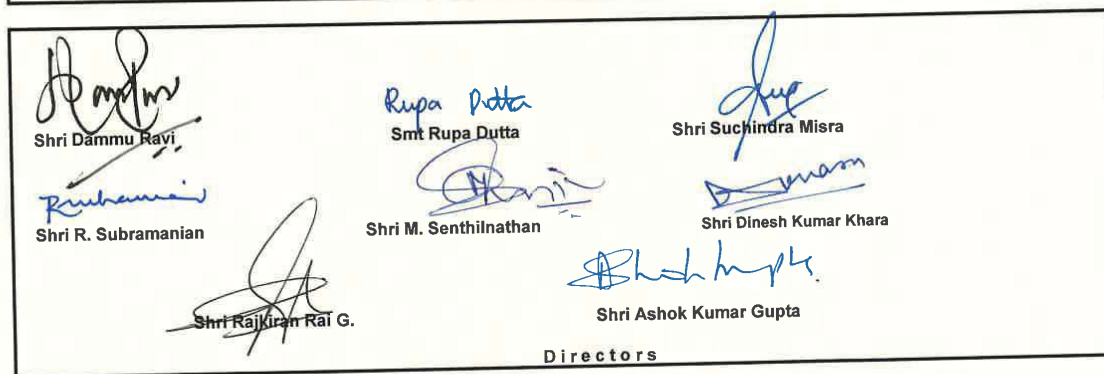 Shri Dammu Ravi
Rupa Dutta
Smt Rupa Dutta
Shri Suchindra Misra
Shri R. Subramanian
Shri M. Senthilnathan
Shri Dinesh Kumar Khara
Shri Rajkiran Rai G.
Shri Ashok Kumar Gupta
Directors